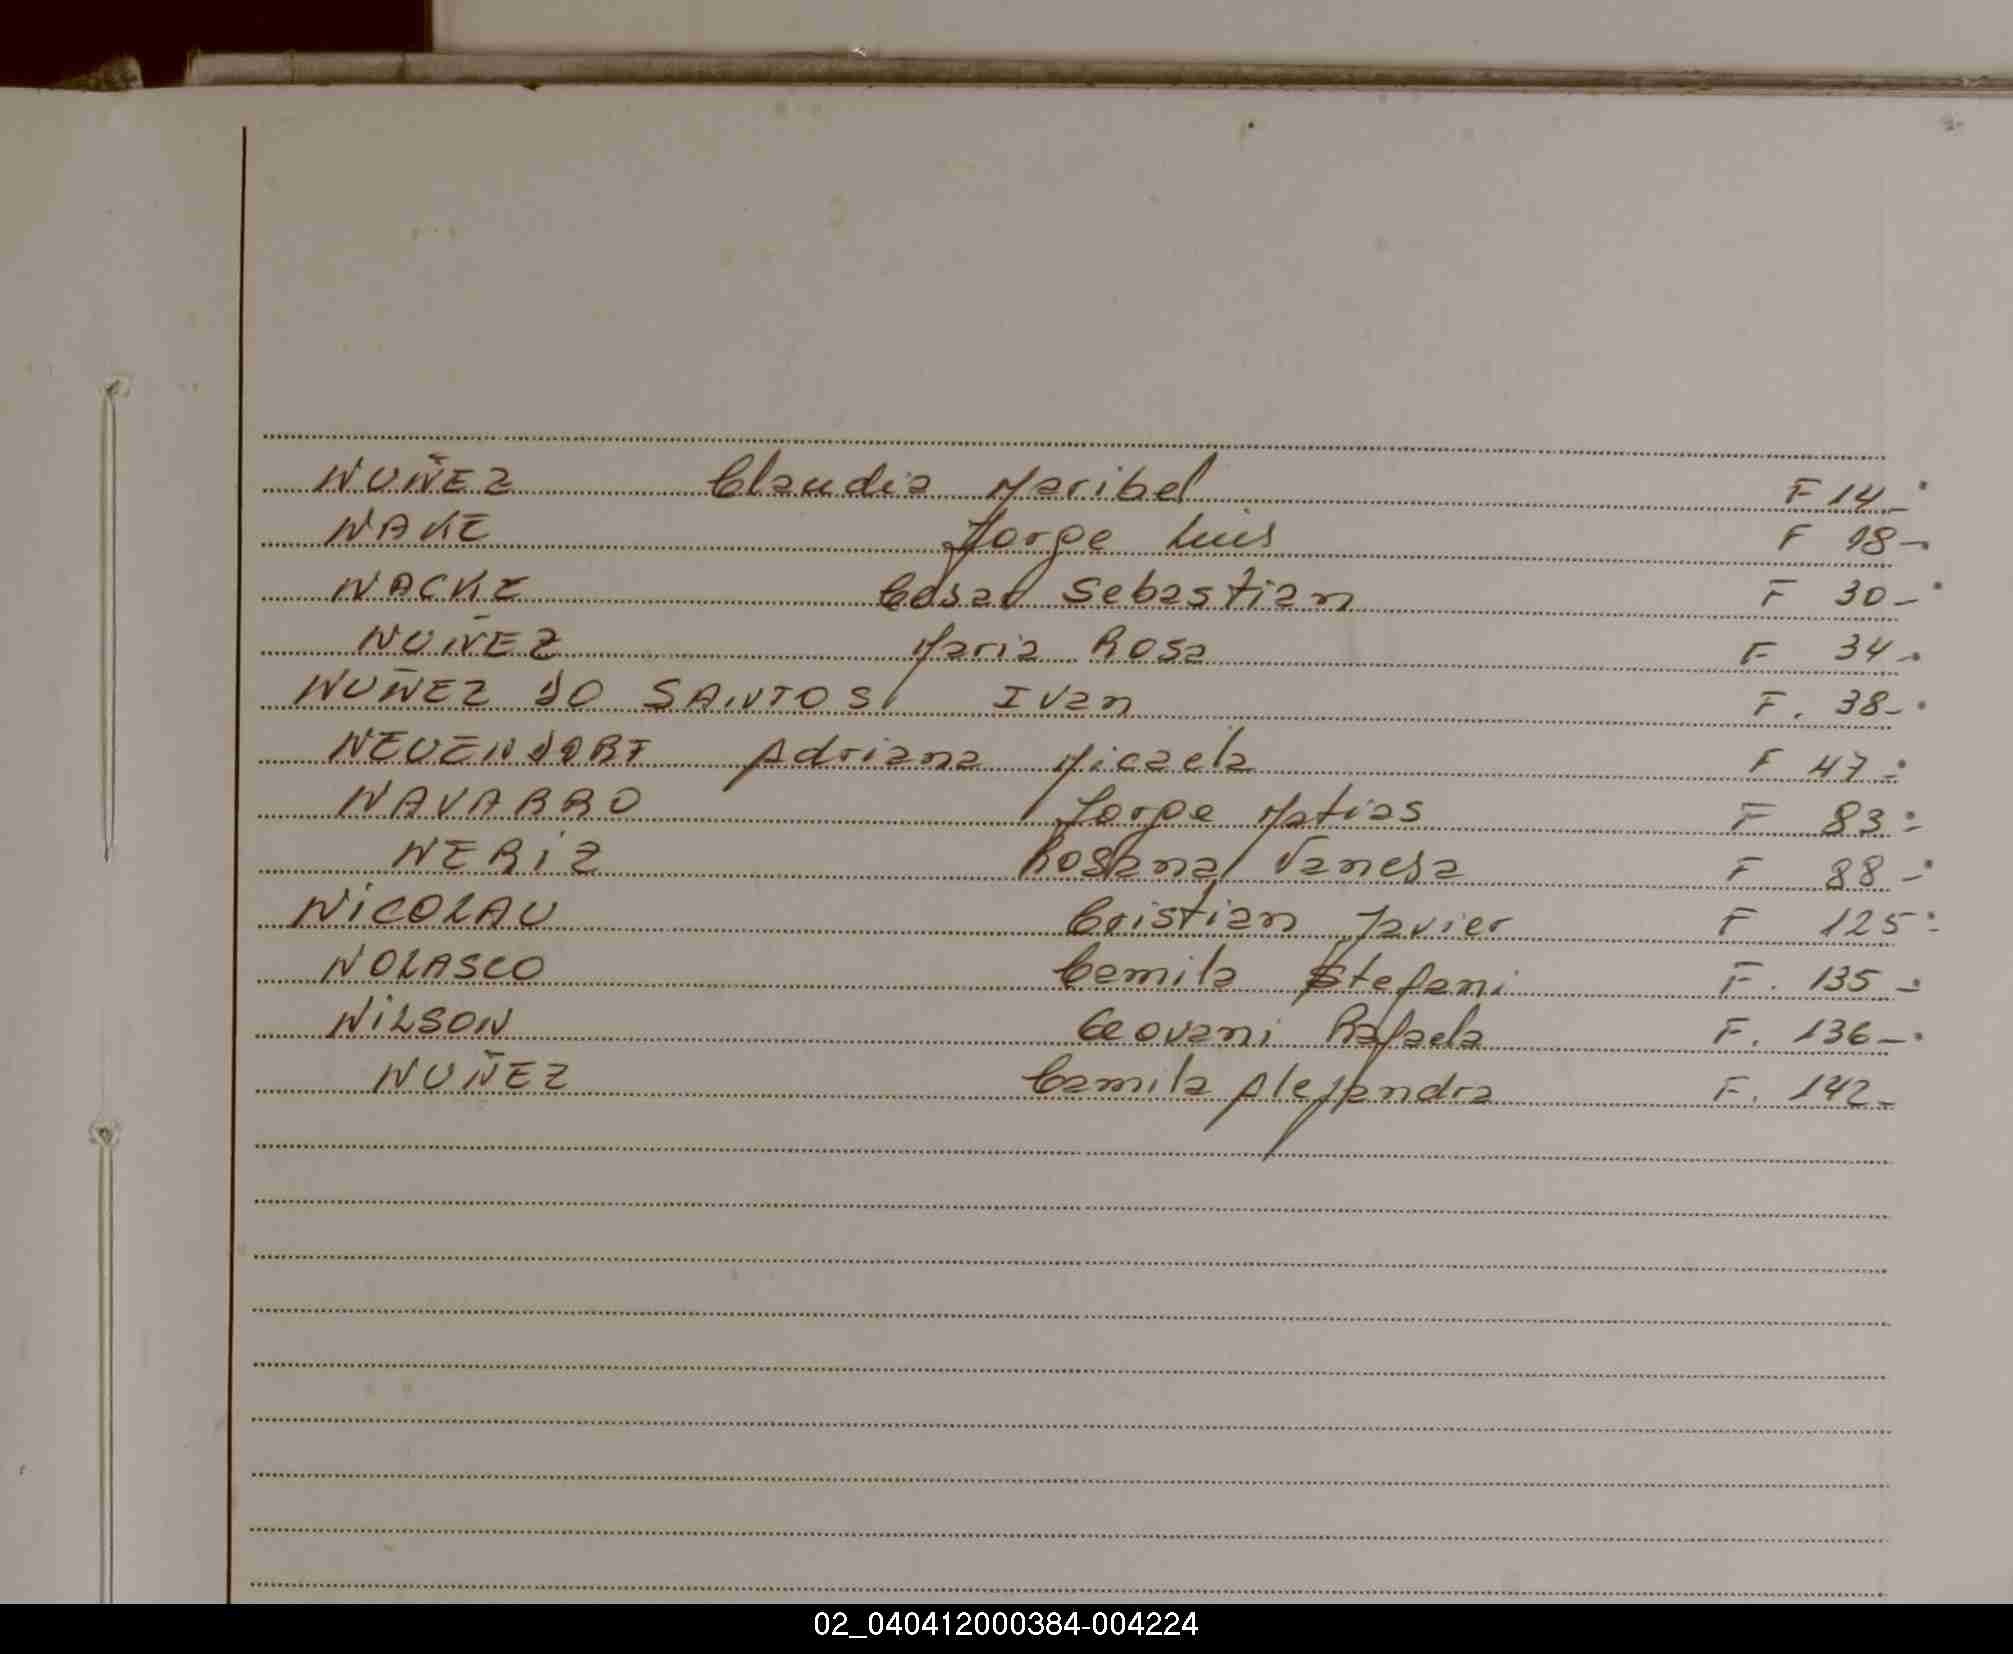 NUÑEZ Claudia Maribel F 14-
NAKE Jorge Luis F 18-
NACKE Cesar Sebastian F 30-
NUÑEZ Maria Rosa F 34-
NUÑEZ DO SANTOS Ivan F. 38-
NEUENDORF Adriana Micaela F 47-
NAVARRO Jorge Matias F 83-
NERIZ Rosana Vanesa F 88-
NICOLAU Cristian Javier F 125-
NOLASCO Camila Stefani F. 135-
NILSON Geovani Rafaela F. 136-
NUÑEZ Camila Alejandra F. 142-
02_040412000384-004224